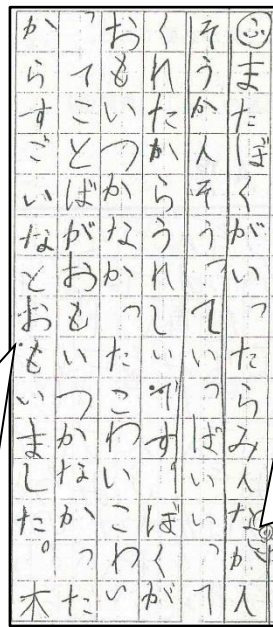 ㋫またぼくがいったらみんなかん
そうかんそうっていっぱいいって
くれたからうれしいです。ぼくが
おもいつかなかったこわいこわい
ってことばがおもいつかなかった
からすごいなとおもいました。木